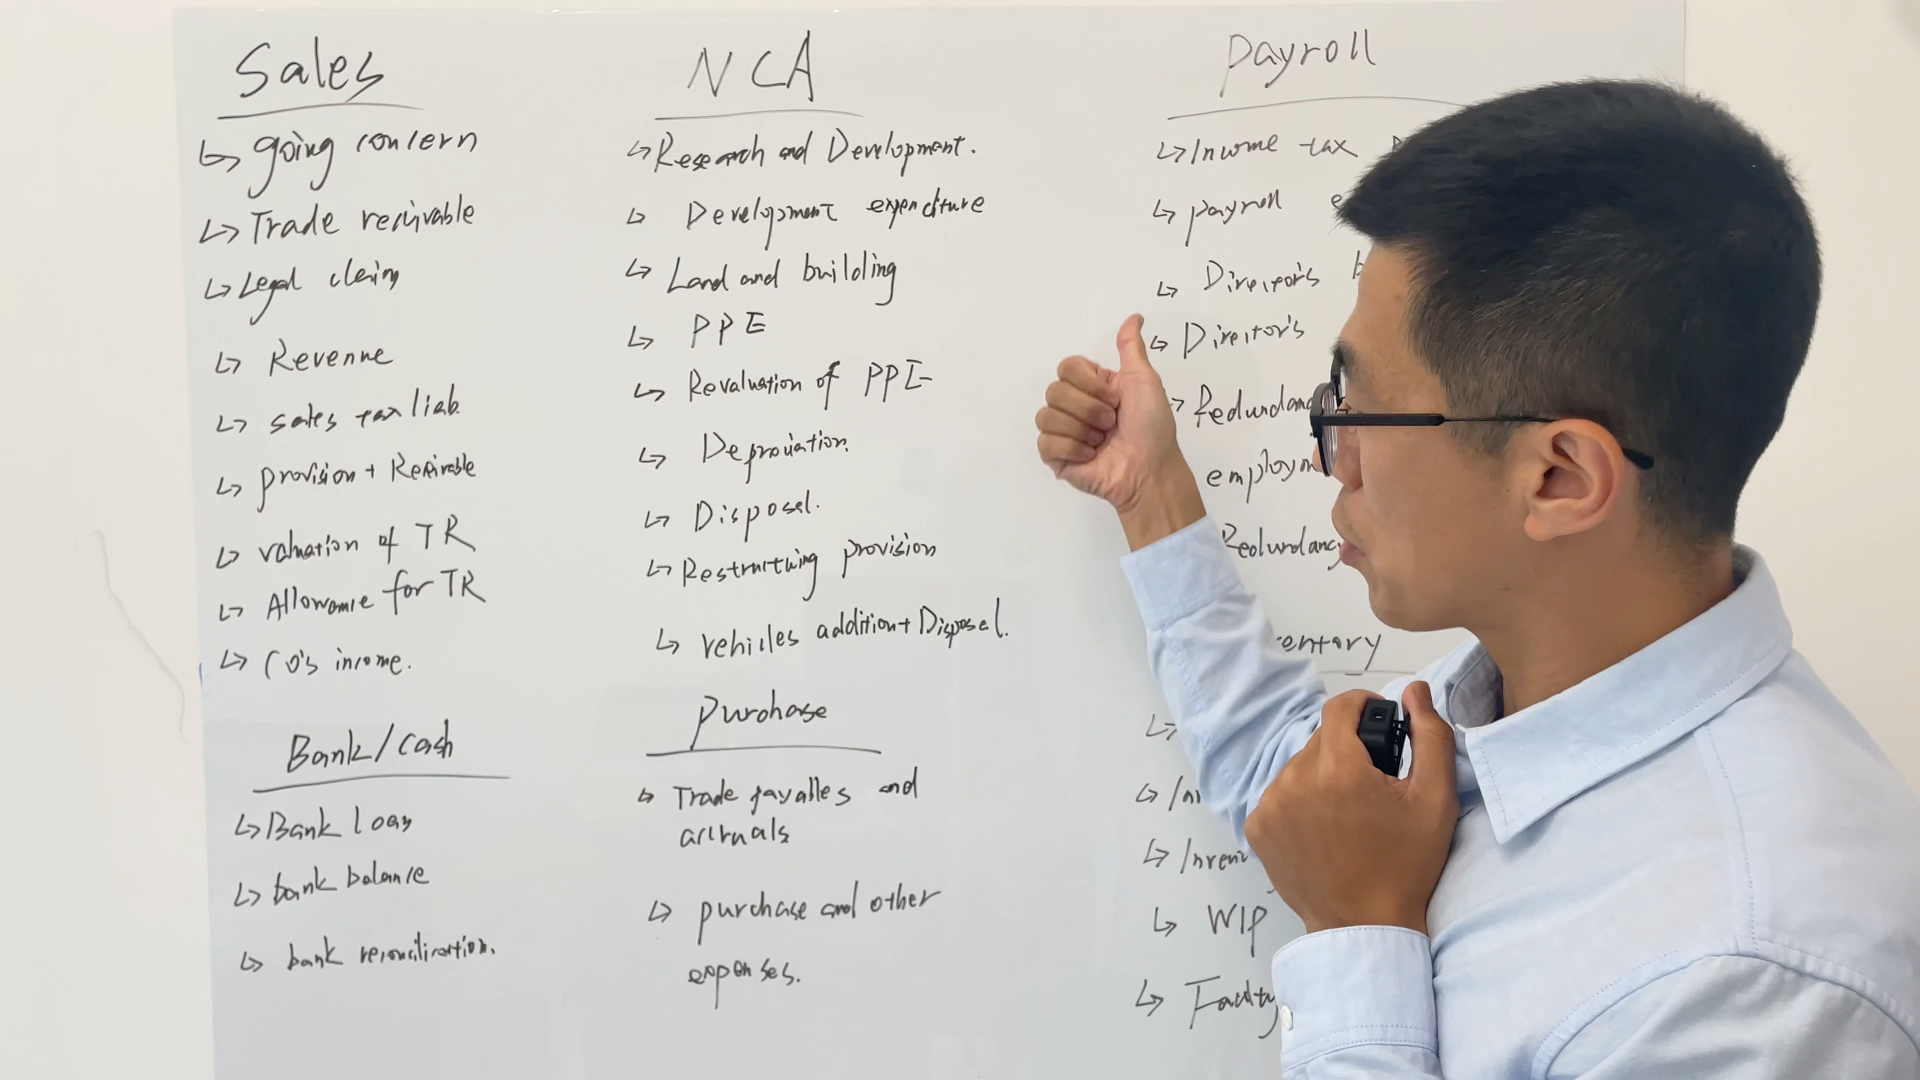 Sales
↳ going concern
↳ Trade receivable
↳ Legal claim
↳ Revenue
↳ sales tax liab.
↳ provision + Receivable
↳ valuation of TR
↳ Allowance for TR
↳ CO's income.
Bank/cash
↳ Bank loan
↳ bank balance
↳ bank reconciliation.
NCA
↳ Research and Development.
↳ Development expenditure
↳ Land and building
↳ PPE
↳ Revaluation of PPE
↳ Depreciation.
↳ Disposal.
↳ Restructuring provision
↳ vehicles addition + Disposal.
purchase
↳ Trade payables and
accruals
↳ purchase and other
expenses.
payroll
↳ Income tax
↳ payroll
↳ Director's
↳ Director's
↳ Redundanc
employm
Redundancy
entory
↳
↳ In
↳ Inven
↳ WIP
↳ Faulty